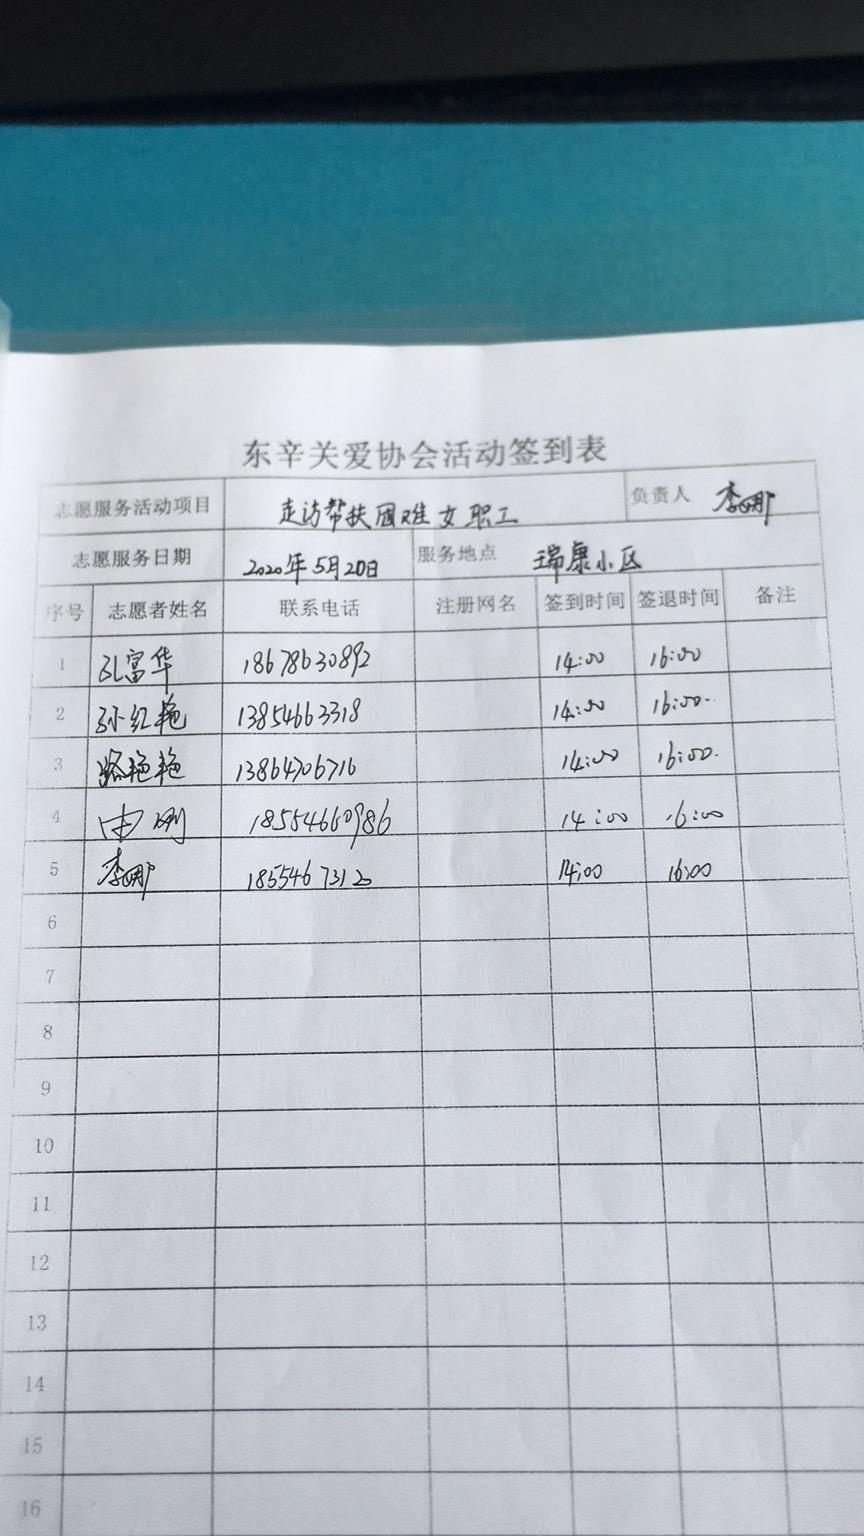 东辛关爱协会活动签到表
志愿服务活动项目 走访帮扶困难女职工 负责人 李娜
志愿服务日期 2020年5月20日 服务地点 瑞康小区
序号 志愿者姓名 联系电话 注册网名 签到时间 签退时间 备注
1 孔富华 18678630892 14:00 16:00
2 孙红艳 13854663318 14:00 16:00.
3 路艳艳 13864706716 14:00 16:00.
4 由 18554660986 14:00 16:00
5 李娜 1855467312 14:00 16:00
6
7
8
9
10
11
12
13
14
15
16